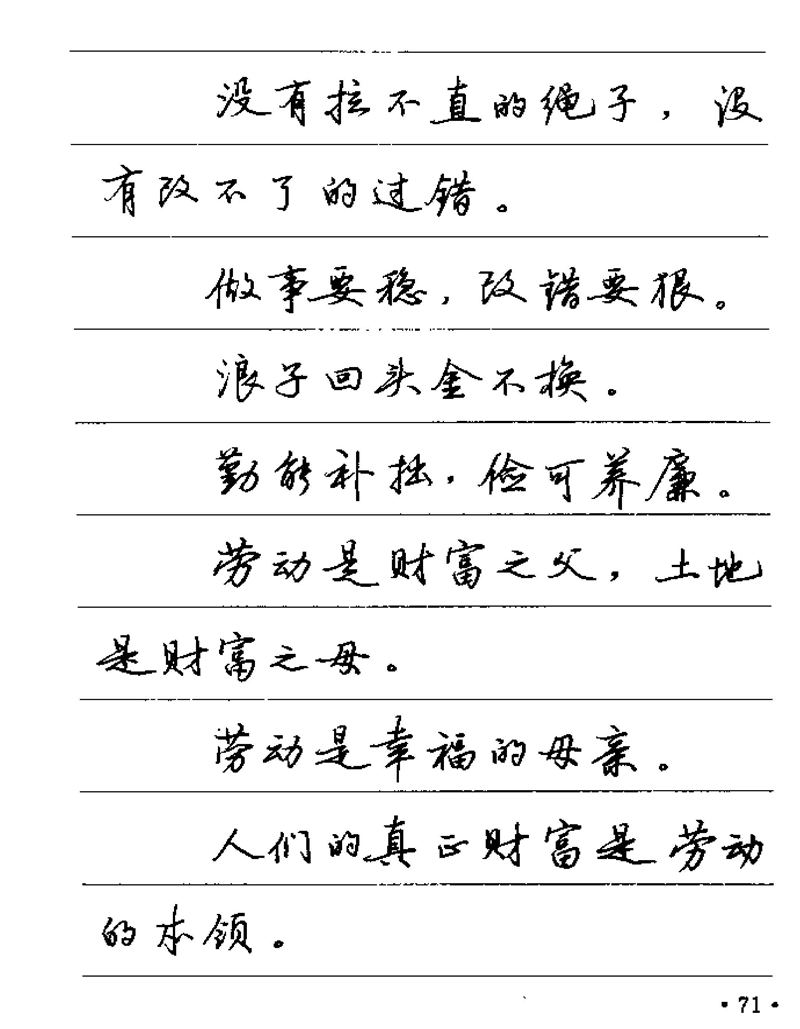 没有拉不直的绳子，没
有改不了的过错。
做事要稳，改错要狠。
浪子回头金不换。
勤能补拙，俭可养廉。
劳动是财富之父，土地
是财富之母。
劳动是幸福的母亲。
人们的真正财富是劳动
的本领。
·71·